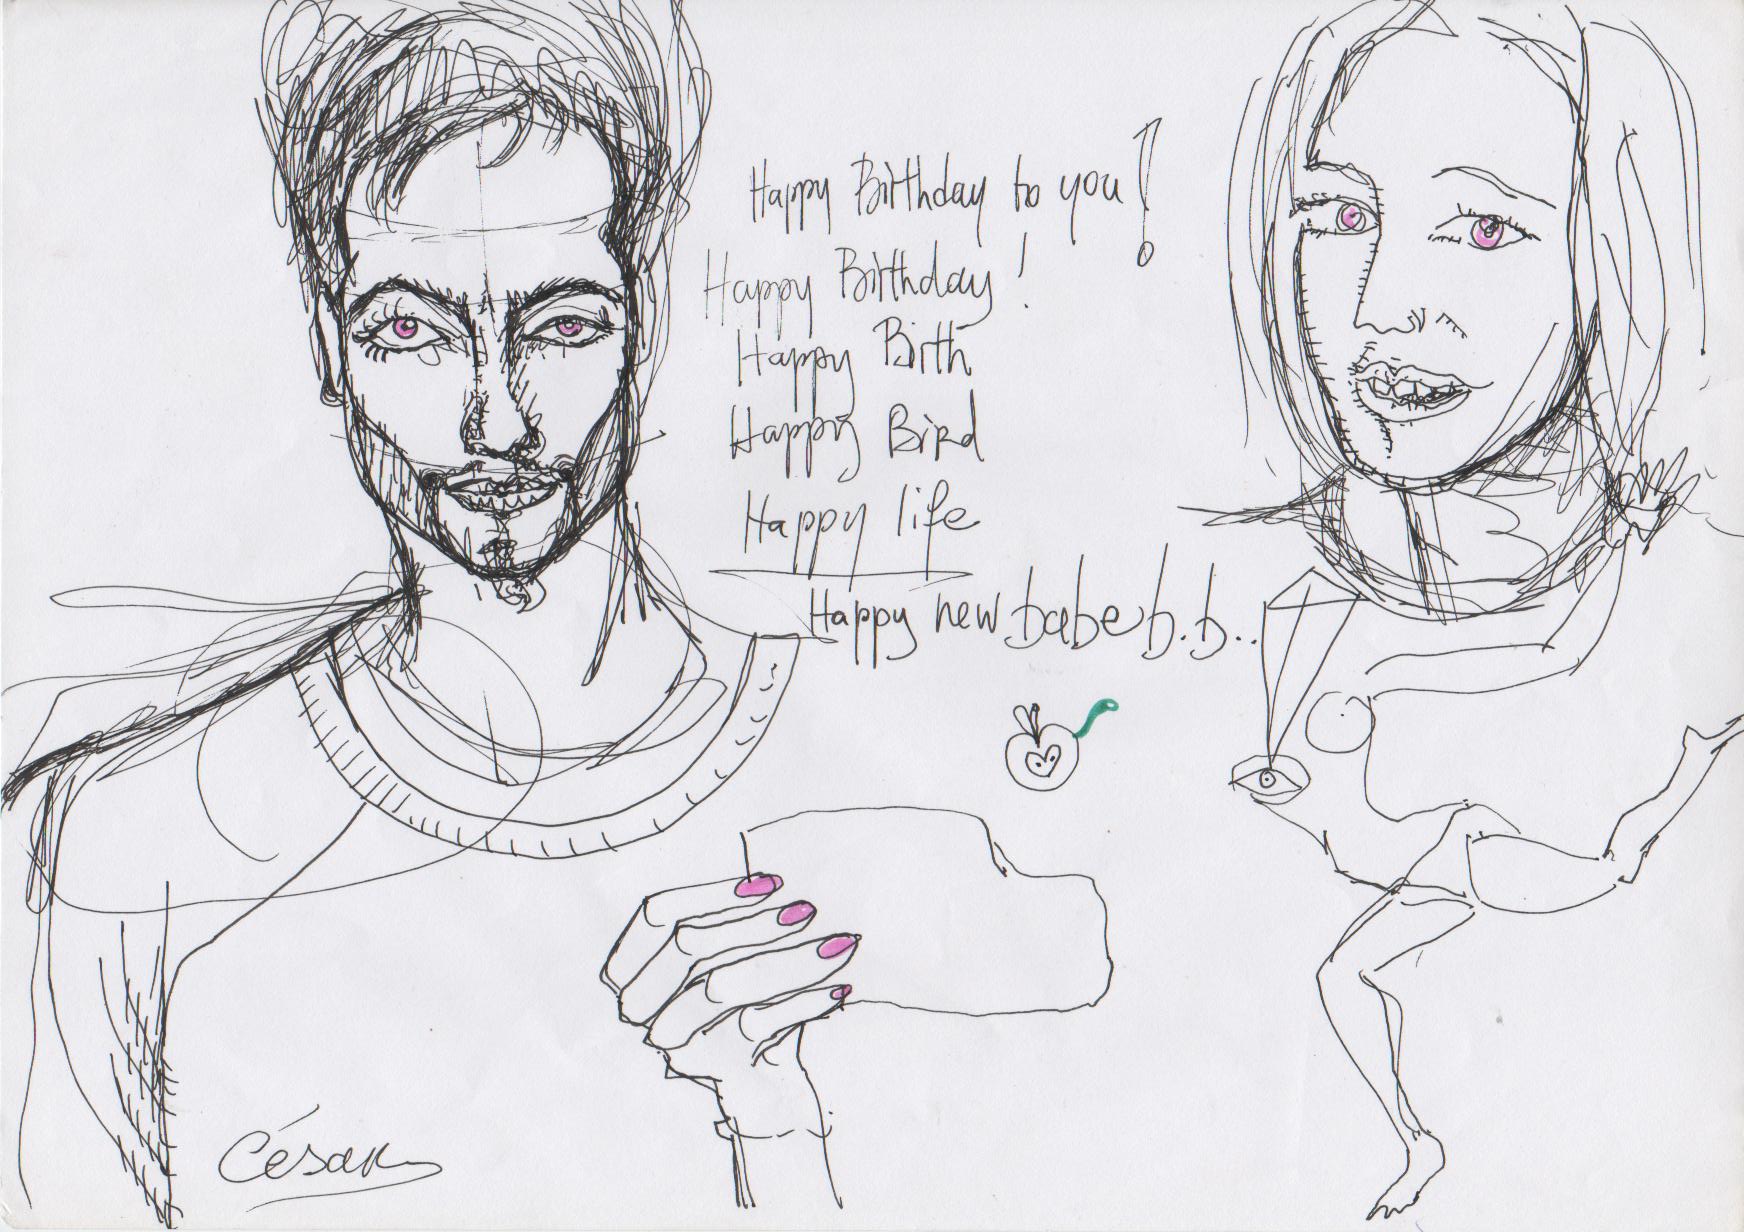 Happy Birthday to you!
Happy Birthday!
Happy Birth
Happy Bird
Happy life
Happy new babe b.b..
César